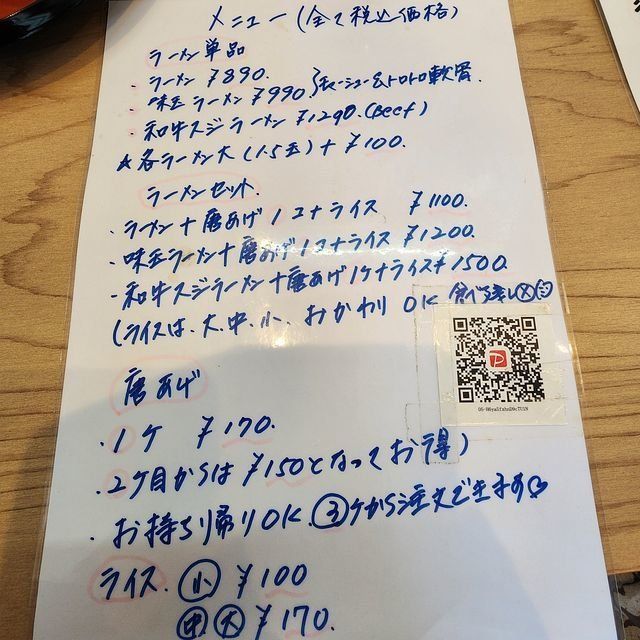 メニュー(全て税込価格)
ラーメン単品
・ラーメン ¥890.
・味玉ラーメン ¥990 }チャーシュー&トロトロ軟骨.
・和牛スジラーメン ¥1290.(Beef)
☆各ラーメン大(1.5玉)+¥100.
ラーメンセット.
・ラーメン+唐あげ1コ+ライス ¥1100.
・味玉ラーメン+唐あげ1コ+ライス ¥1200.
・和牛スジラーメン+唐あげ1ケ+ライス¥1500.
(ライスは、大.中.小、おかわりOK
唐あげ
・1ケ ¥170.
・2ケ目からは¥150となってお得)
・お持ち帰りOK.③ケから注文できます
ライス.㊙小 ¥100
㊥大 ¥170.